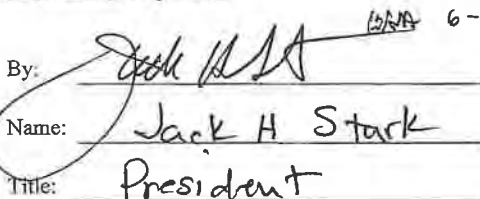 6-
By:
Name: Jack H Stark
Title: President